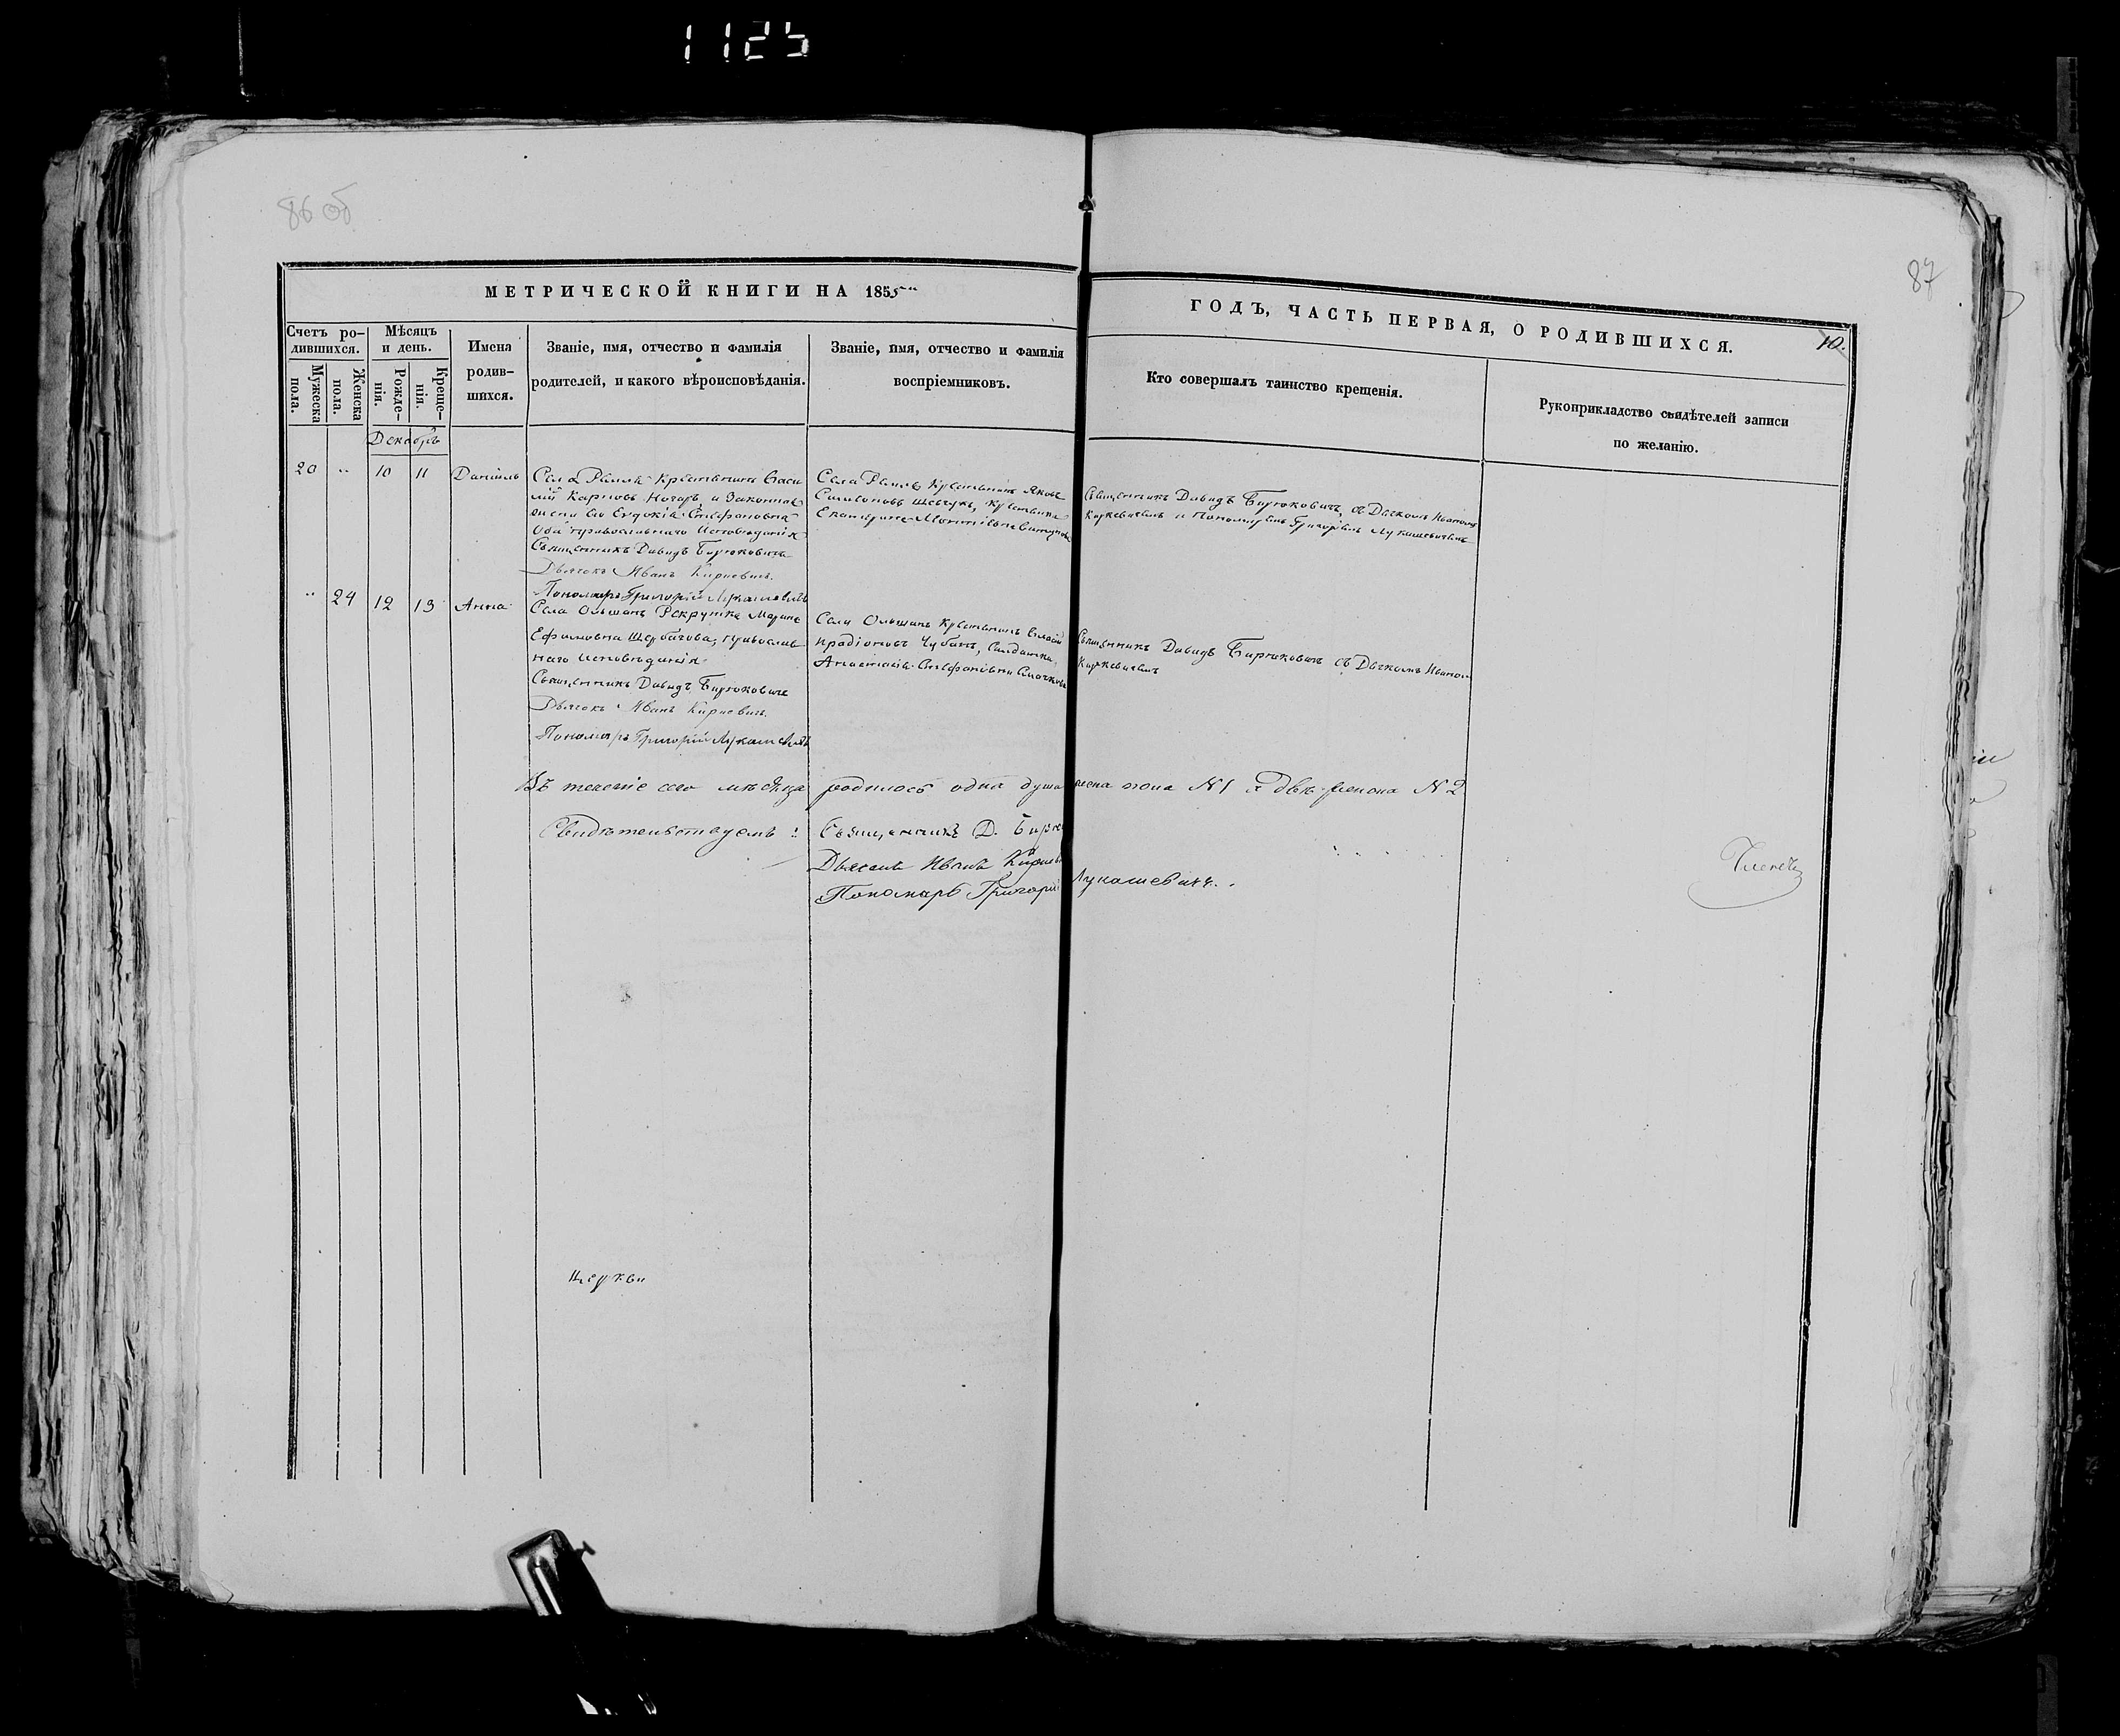 1125
86 об
87
МЕТРИЧЕСКОЙ КНИГИ НА 1855
ГОДЪ, ЧАСТЬ ПЕРВАЯ, О РОДИВШИХСЯ.
10.
Счетъ ро-
дившихся.
Мужеска
пола.
Женска
пола.
Мѣсяцъ
и день.
Рожде-
нія.
Креще-
нія.
Имена
родив-
шихся.
Званіе, имя, отчество и фамилія
родителей, и какого вѣроисповѣданія.
Званіе, имя, отчество и фамилія
воспріемниковъ.
Кто совершалъ таинство крещенія.
Рукоприкладство свидѣтелей записи
по желанію.
Декабрь
20 " 10 11 Даніилъ
Села Крестьянинъ Васи
лій Карповъ и Законная
жена его Евдокія Стефановна
оба православнаго исповеданія
Священникъ Давидъ Бирюковичъ
Дьячокъ Иванъ
Пономарь Григорій Лукашевичъ
Села Крестьянинъ Яковъ
Симеоновъ Шевчукъ, Крестьянка
Екатерина
Священникъ Давидъ Бирюковичъ, съ Дьячкомъ Иваномъ
и Пономаремъ Григоріемъ Лукашевичемъ
" 24 12 13 Анна
Села Ольшанъ Рекрутка Марина
Ефимовна Щербачова, православ
наго исповеданія
Священникъ Давидъ Бирюковичъ
Дьячокъ Иванъ
Пономарь Григорій Лукашевичъ
Села Ольшанъ Крестьянинъ
Чубанъ, Солдатка
Анастасія Стефановна
Священникъ Давидъ Бирюковичъ съ Дьячкомъ Иваномъ
Въ теченіе сего мѣсяца родилось одна душа пола №1 и двѣ №2
Свидѣтельствуемъ: Священникъ Д.
Дьячокъ Иванъ
Пономарь Григорій Лукашевичъ.
церкви